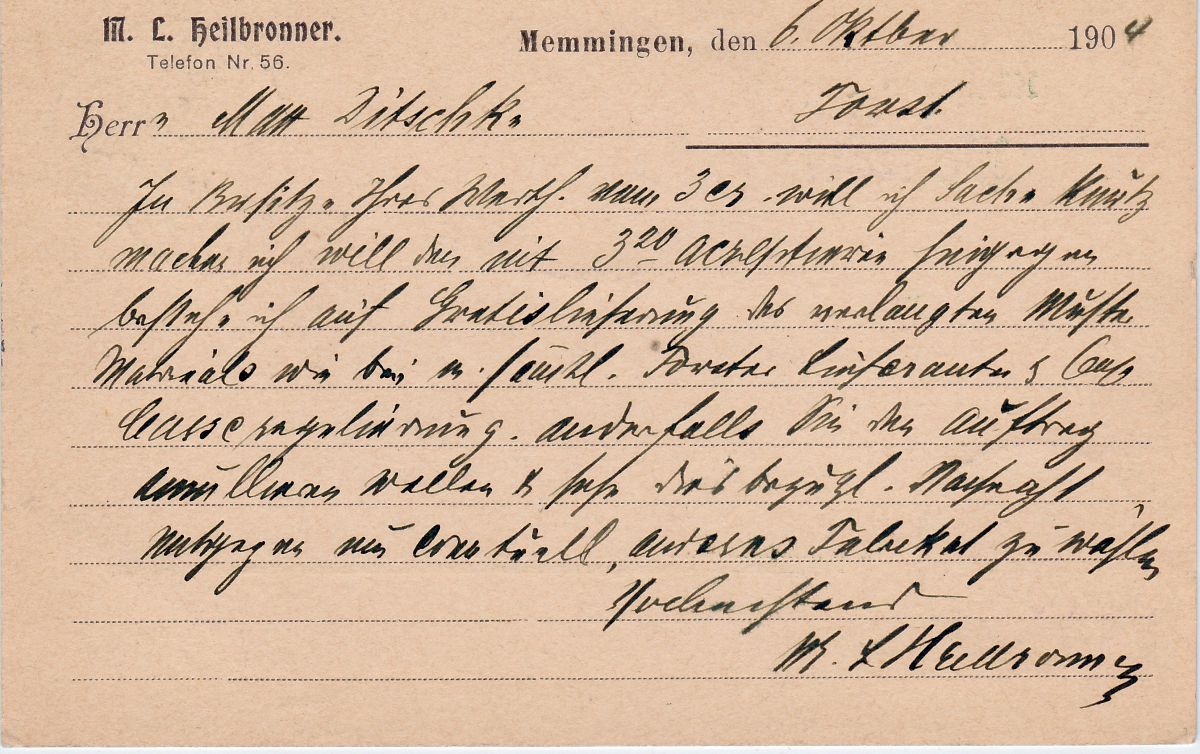 M. L. Heilbronner.
Telefon Nr. 56.
Memmingen, den 6. Oktber 1904
Herrn Matt Ditschke
Forst.
Im Besitze Ihres Werth. vom 3 cr. will ich Sache
machen ich will den mit 3 20 acceptieren hingegen
bestehe ich auf Gratislieferung des verlangten Muster
Materials wie bei m. sämtl. Forster Lieferanten &
Cassaregulierung. anderfalls Sie den Auftrag
annulliren wollen & sehe diesbezügl. Nachricht
entgegen um eventuell, anderes Fabrikat zu wählen
Hochachtend
M. L Heilbronner